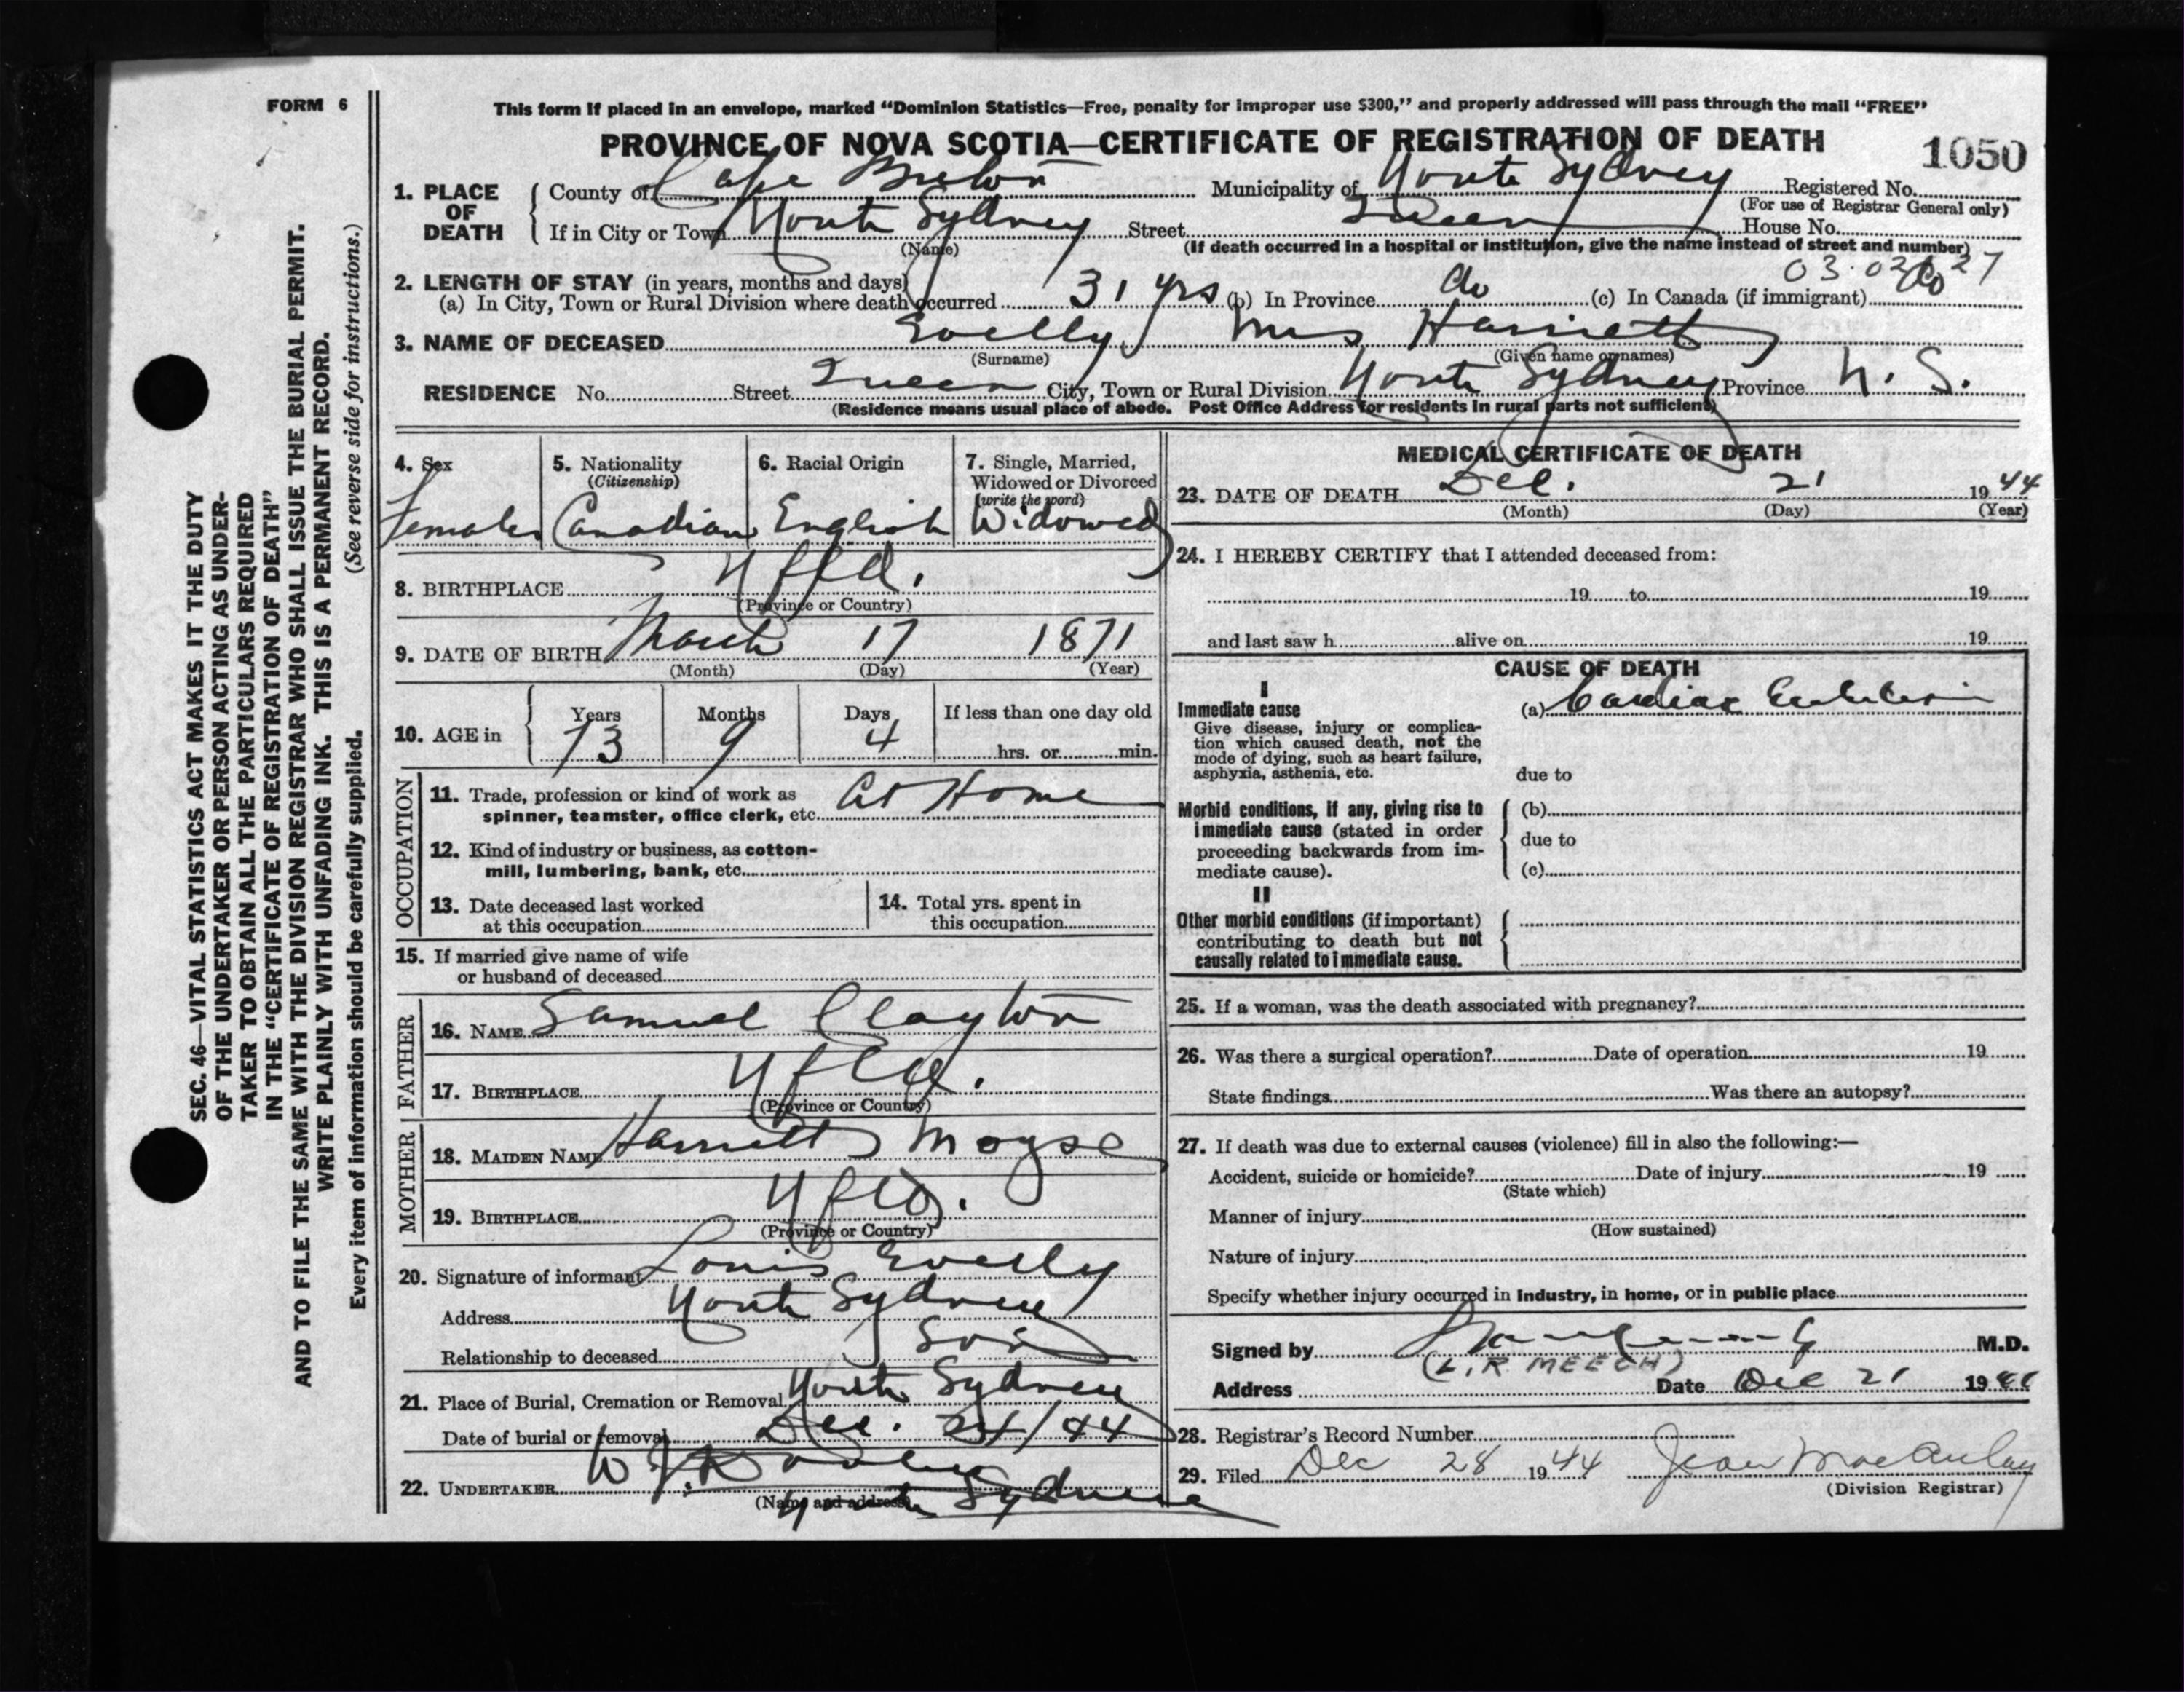 FORM 6
This form if placed in an envelope, marked “Dominion Statistics—Free, penalty for improper use $300,” and properly addressed will pass through the mail “FREE”
PROVINCE OF NOVA SCOTIA—CERTIFICATE OF REGISTRATION OF DEATH
1050
1. PLACE OF DEATH
County of Cape Breton Municipality of North Sydney Registered No.
(For use of Registrar General only)
If in City or Town North Sydney Street Queen House No.
(Name) (If death occurred in a hospital or institution, give the name instead of street and number)
2. LENGTH OF STAY (in years, months and days) 03.02 27
(a) In City, Town or Rural Division where death occurred 31 yrs (b) In Province do (c) In Canada (if immigrant) do
3. NAME OF DECEASED Evelly, Mrs Harriett
(Surname) (Given name or names)
RESIDENCE No. Street Queen City, Town or Rural Division North Sydney Province N. S.
(Residence means usual place of abode. Post Office Address for residents in rural parts not sufficient)
4. Sex
Female
5. Nationality
(Citizenship)
Canadian
6. Racial Origin
English
7. Single, Married,
Widowed or Divorced
(write the word)
Widowed
8. BIRTHPLACE Nfld.
(Province or Country)
9. DATE OF BIRTH March 17 1871
(Month) (Day) (Year)
10. AGE in
Years Months Days If less than one day old
73 9 4 hrs. or min.
OCCUPATION
11. Trade, profession or kind of work as
spinner, teamster, office clerk, etc. At Home
12. Kind of industry or business, as cotton-
mill, lumbering, bank, etc.
13. Date deceased last worked
at this occupation
14. Total yrs. spent in
this occupation
15. If married give name of wife
or husband of deceased
FATHER
16. NAME Samuel Clayton
17. BIRTHPLACE Nfld.
(Province or Country)
MOTHER
18. MAIDEN NAME Harriett Moyse
19. BIRTHPLACE Nfld.
(Province or Country)
20. Signature of informant Louis Evelly
Address North Sydney
Relationship to deceased Son
21. Place of Burial, Cremation or Removal North Sydney
Date of burial or removal Dec. 24/44
22. UNDERTAKER W. J.
(Name and address) North Sydney
MEDICAL CERTIFICATE OF DEATH
23. DATE OF DEATH Dec. 21 1944
(Month) (Day) (Year)
24. I HEREBY CERTIFY that I attended deceased from:
19 to 19
and last saw h alive on 19
CAUSE OF DEATH
I
Immediate cause
Give disease, injury or complica-
tion which caused death, not the
mode of dying, such as heart failure,
asphyxia, asthenia, etc.
(a) Cardiac
due to
Morbid conditions, if any, giving rise to
immediate cause (stated in order
proceeding backwards from im-
mediate cause).
(b)
due to
(c)
II
Other morbid conditions (if important)
contributing to death but not
causally related to immediate cause.
25. If a woman, was the death associated with pregnancy?
26. Was there a surgical operation? Date of operation 19
State findings Was there an autopsy?
27. If death was due to external causes (violence) fill in also the following:—
Accident, suicide or homicide? Date of injury 19
(State which)
Manner of injury
(How sustained)
Nature of injury
Specify whether injury occurred in industry, in home, or in public place
Signed by M.D.
(L.R. MEECH)
Address Date Dec 21 1944
28. Registrar's Record Number
29. Filed Dec 28 1944 Jean MacAulay
(Division Registrar)
SEC. 46—VITAL STATISTICS ACT MAKES IT THE DUTY
OF THE UNDERTAKER OR PERSON ACTING AS UNDER-
TAKER TO OBTAIN ALL THE PARTICULARS REQUIRED
IN THE “CERTIFICATE OF REGISTRATION OF DEATH”
AND TO FILE THE SAME WITH THE DIVISION REGISTRAR WHO SHALL ISSUE THE BURIAL PERMIT.
WRITE PLAINLY WITH UNFADING INK. THIS IS A PERMANENT RECORD.
Every item of information should be carefully supplied. (See reverse side for instructions.)